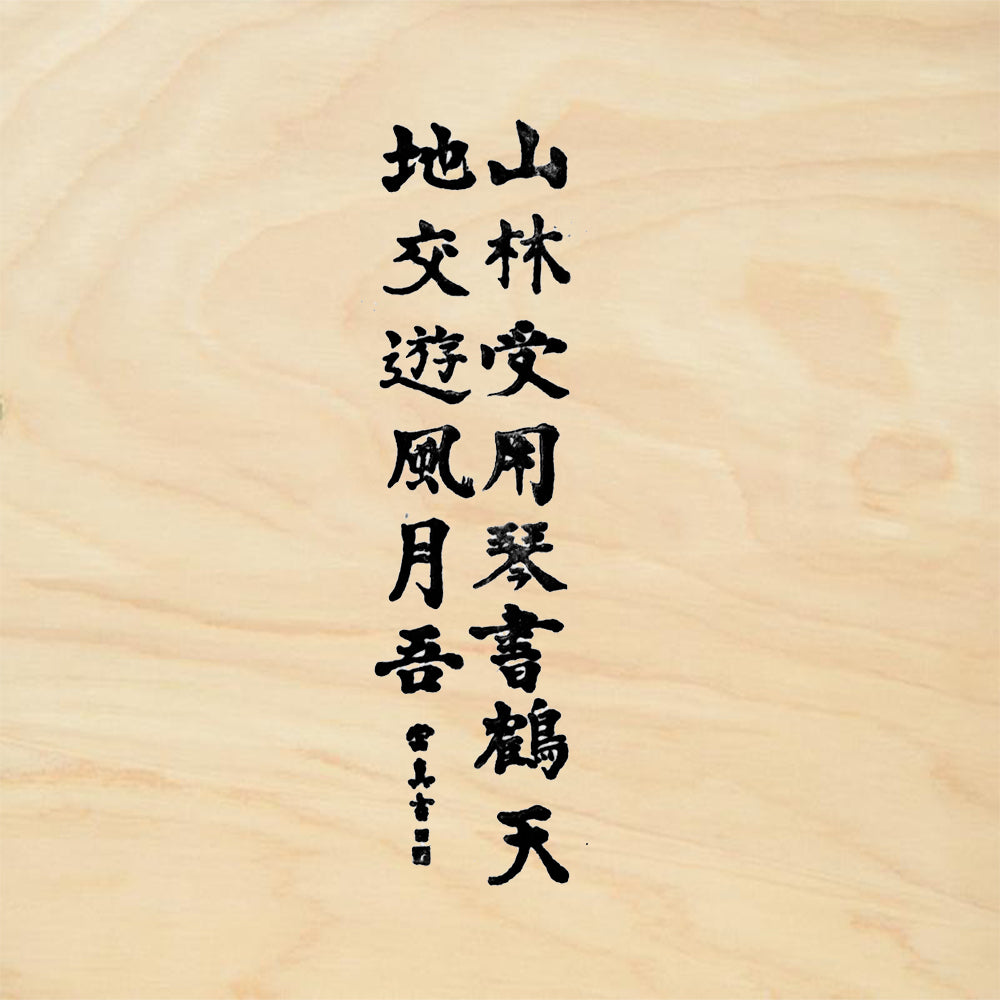 山林受用琴書鶴天
地交遊風月吾